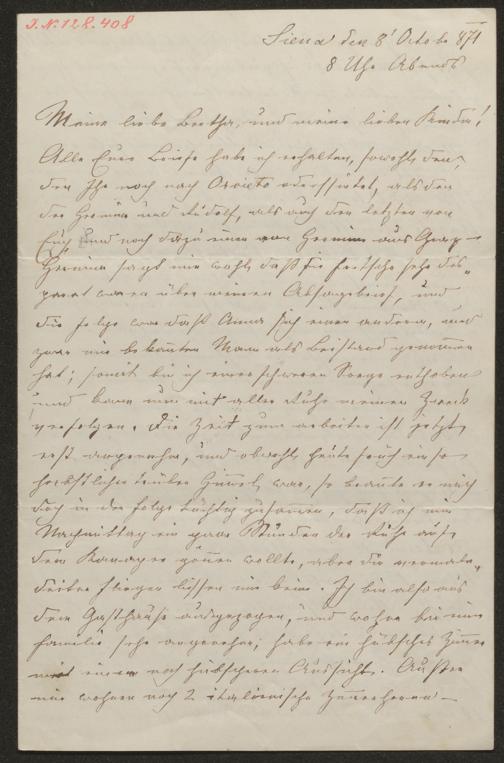 J.N. 128.408
Siena den 8' Octobe 871
8 Uhr Abends
Meine liebe Bertha, und meine lieben Kinder!
Alle Eure Briefe habe ich erhalten, sowohl den,
den Ihr noch nach Orvieto adressirtet, als den
der Hermine und Rudolf, als auch den letzten von
Euch, und noch dazu einen von Hermine aus Graz –
Hermine sagt mir wohl daß die Fritsche sehr des-
parat waren über meinen Absagebrief, und
die Folge war daß Anna sich einen andern, und
zwar mir bekannten Mann als Beistand genommen
hat; somit bin ich einer schweren Sorge enthoben
und kann nun mit aller Ruhe meinen Zweck
verfolgen. Die Zeit zum arbeiten ist jetzt
erst angenehm, und obwohl heute so
herbstlich trüber Himmel war, so brannte er mich
doch in der Folge tüchtig zusammen, daß ich mir
Nachmittag ein paar Stunden der Ruhe auf
dem Kanapee gönnen wollte, aber die vermale-
deiten Fliegen ließen mir keine. Ich bin also aus
dem Gasthause ausgezogen, und wohne bei einer
Familie sehr angenehm; habe ein hübsches Zimmer
mit einer noch hübscheren Aussicht. Außer
mir wohnen noch 2 italienische Zimmerherren –